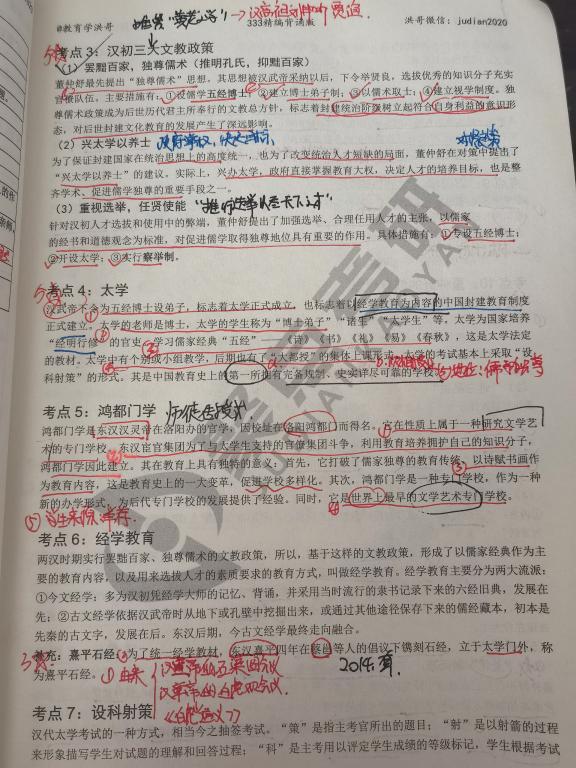 @教育学洪哥
333精编背诵版
洪哥微信：judian2020
考点 3：汉初三大文教政策
（1）罢黜百家，独尊儒术（推明孔氏，抑黜百家）
董仲舒最先提出“独尊儒术”思想，其思想被汉武帝采纳以后，下令举贤良，选拔优秀的知识分子充实
官僚队伍。主要措施有：①设儒学五经博士；②建立博士弟子制；③以儒术取士；④建立视学制度。独
尊儒术政策成为后世历代君主所奉行的文教总方针，标志着封建统治阶级树立起符合自身利益的意识形
态，对后世封建文化教育的发展产生了深远影响。
（2）兴太学以养士
为了保证封建国家在统治思想上的高度统一，也为了改变统治人才短缺的局面，董仲舒在对策中提出了
“兴太学以养士”的建议。实际上，兴办太学，政府直接掌握教育大权，决定人才的培养目标，也是整
齐学术、促进儒学独尊的重要手段之一。
（3）重视选举，任贤使能
针对汉初人才选拔和使用中的弊端，董仲舒提出了加强选举、合理任用人才的主张，以儒家
的经书和道德观念为标准，对促进儒学取得独尊地位具有重要的作用。具体措施有：①专设五经博士；
②开设太学；③实行察举制。
考点 4：太学
汉武帝下令为五经博士设弟子，标志着太学正式成立，也标志着以经学教育为内容的中国封建教育制度
正式建立。太学的老师是博士，太学的学生称为“博士弟子”“诸生”“太学生”等，太学为国家培养
“经明行修”的官吏，学习儒家经典“五经”——《诗》《书》《礼》《易》《春秋》，这是太学法定
的教材。太学中有个别或小组教学，后期也有了“大都授”的集体上课形式，太学的考试基本上采取“设
科射策”的形式。其是中国教育史上的第一所拥有完备规制、史实详尽可靠的学校。
考点 5：鸿都门学
鸿都门学是东汉汉灵帝在洛阳办的官学，因校址在洛阳鸿都门而得名。它在性质上属于一种研究文学艺
术的专门学校。东汉宦官集团为了与太学生支持的官僚集团斗争，利用教育培养拥护自己的知识分子，
鸿都门学因此建立。其在教育上具有独特的意义：首先，它打破了儒家独尊的教育传统，以诗赋书画作
为教育内容，这是教育史上的一大变革，促进学校多样化。其次，鸿都门学是一种专门学校，作为一种
新的办学形式，为后代专门学校的发展提供了经验。同时，它是世界上最早的文学艺术专门学校。
考点 6：经学教育
两汉时期实行罢黜百家、独尊儒术的文教政策，所以，基于这样的文教政策，形成了以儒家经典作为主
要的教育内容，以及用来选拔人才的素质要求的教育方式，叫做经学教育。经学教育主要分为两大流派：
①今文经学：多为汉初凭经学大师的记忆、背诵，并采用当时流行的隶书记录下来的六经旧典，发展在
先；②古文经学依据汉武帝时从地下或孔壁中挖掘出来，或通过其他途径保存下来的儒经藏本，初本是
先秦的古文字，发展在后。东汉后期，今古文经学最终走向融合。
补充：熹平石经：为了统一经学教材，东汉熹平四年在蔡邕等人的倡议下镌刻石经，立于太学门外，称
为熹平石经。
考点 7：设科射策
汉代太学考试的一种方式，相当今之抽签考试。“策”是指主考官所出的题目；“射”是以射箭的过程
来形象描写学生对试题的理解和回答过程；“科”是主考用以评定学生成绩的等级标记，学生根据考试